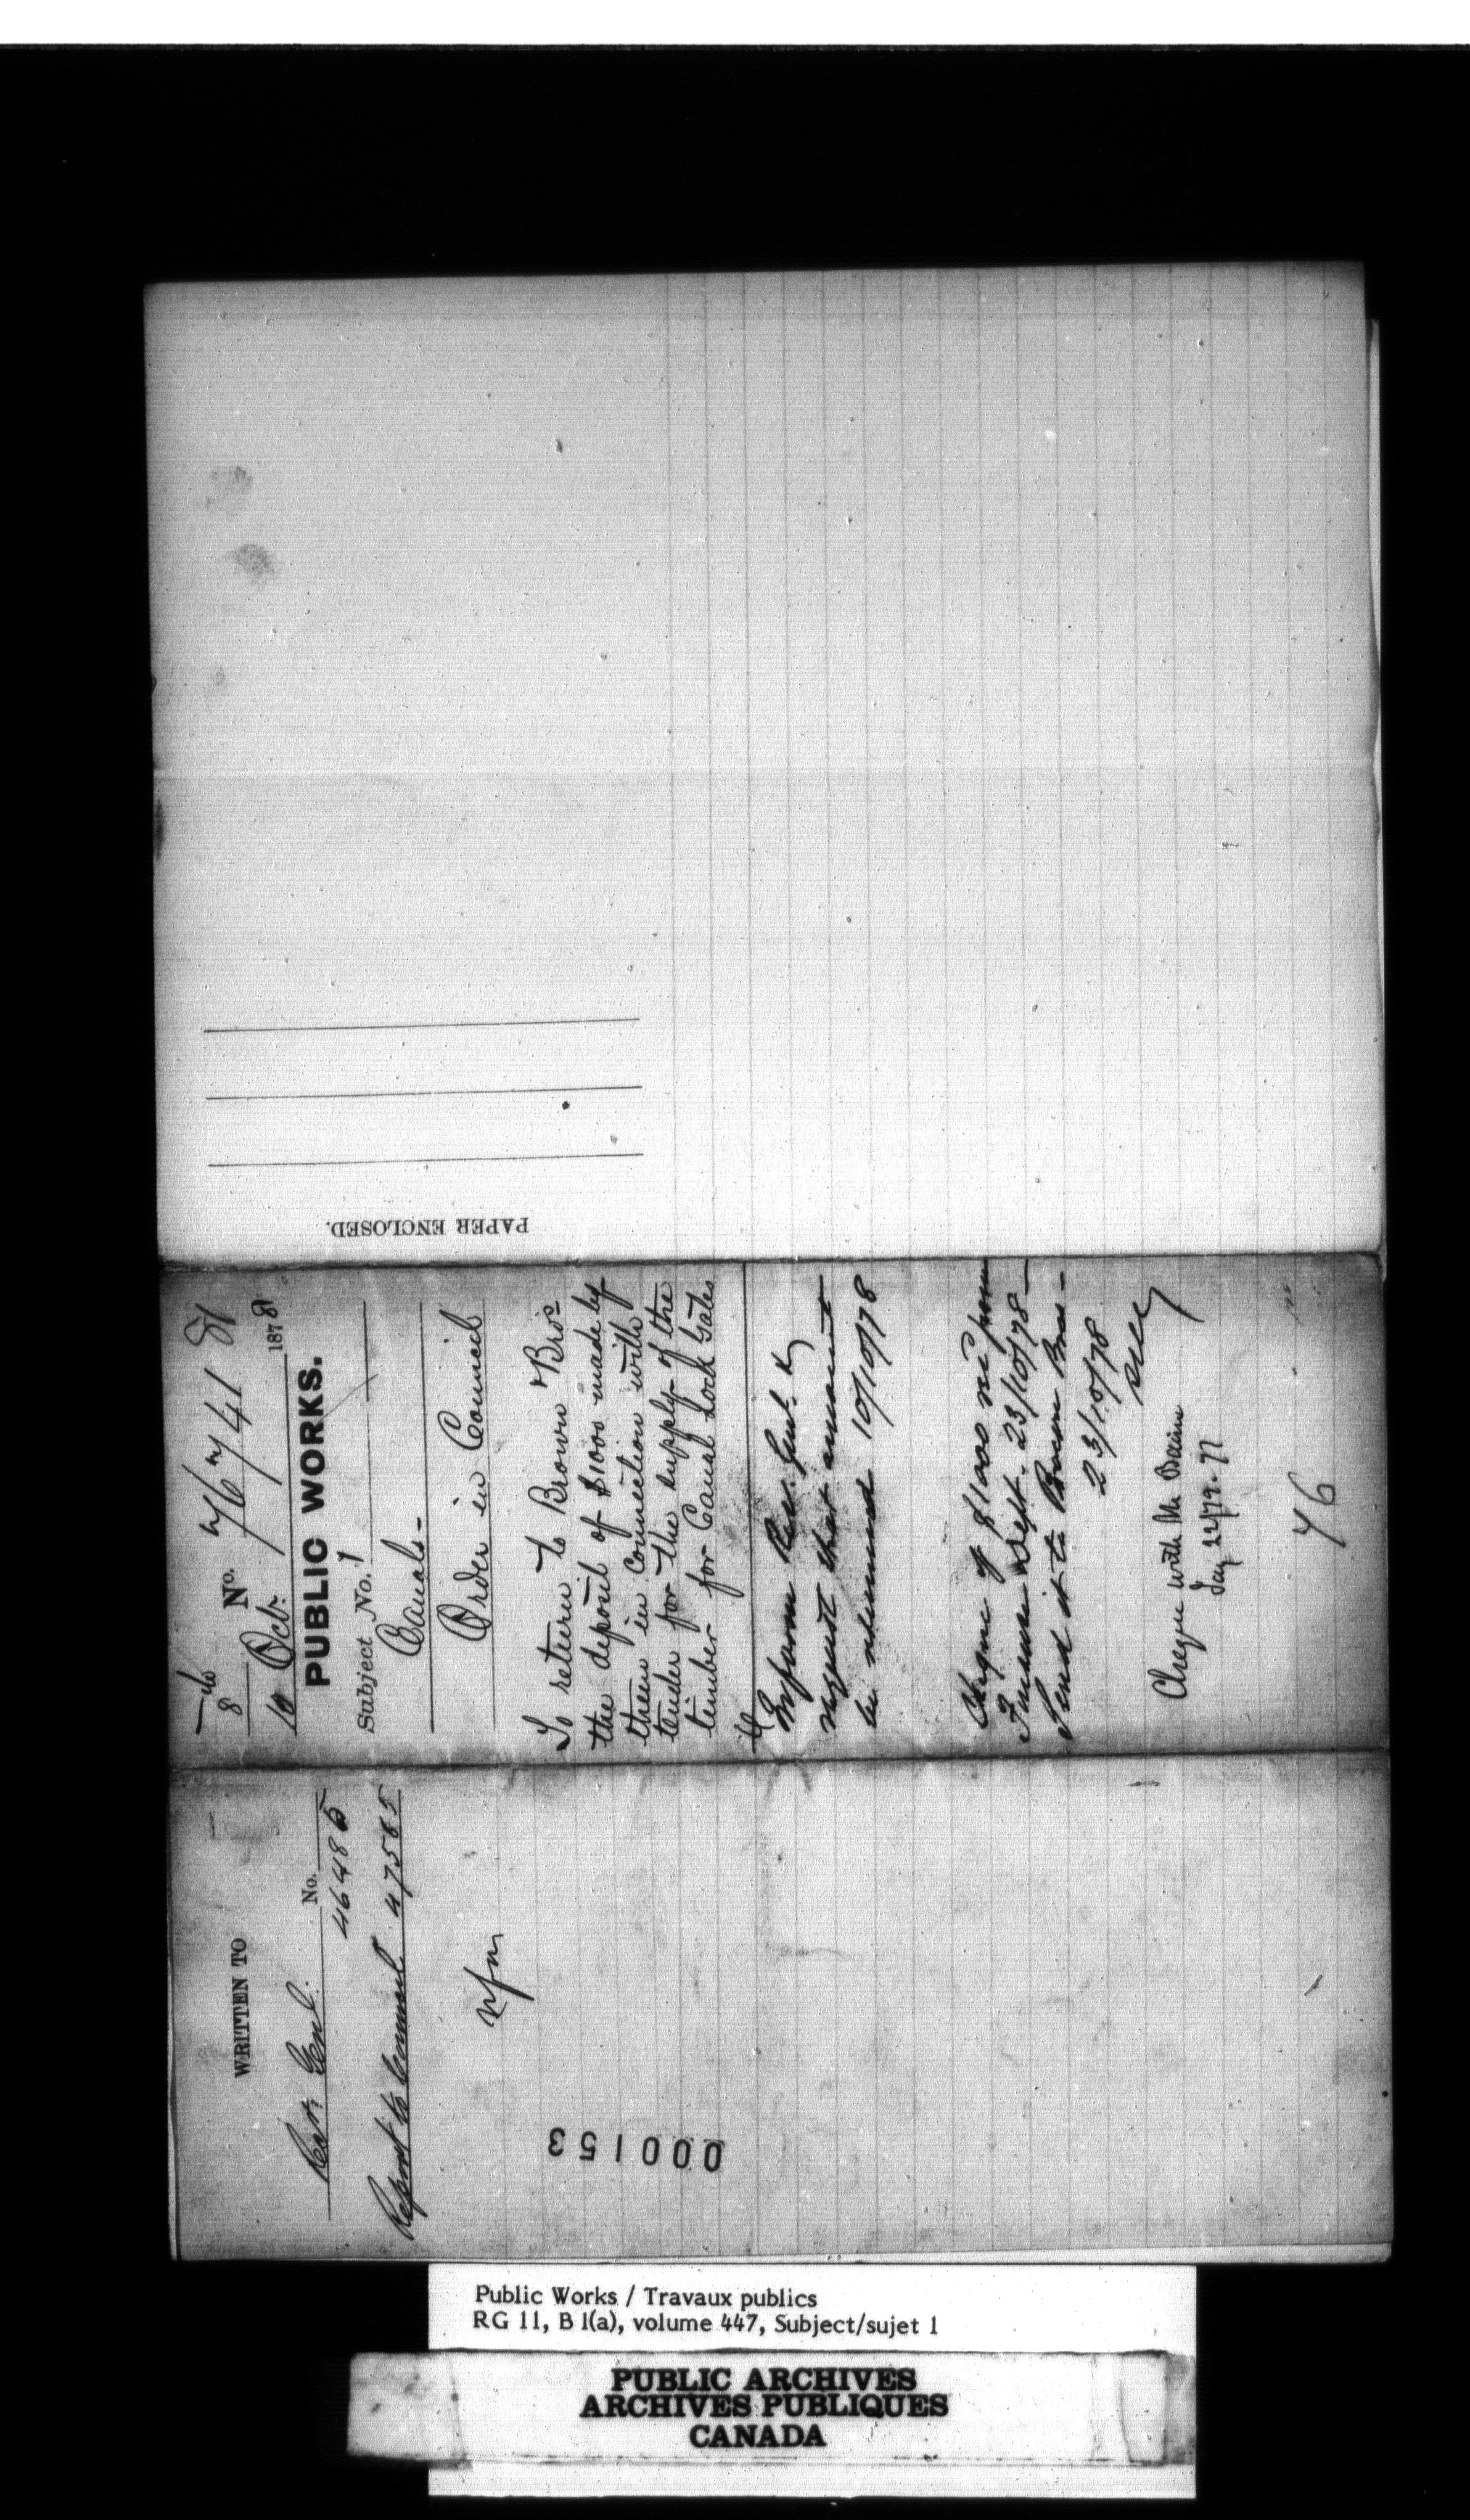 PAPER ENCLOSED.
8
No. 76741
10 Octr. 1878
PUBLIC WORKS.
Subject No. 1
Canals-
Order in Council
To return to Brown & Bros
the deposit of $1000 made by
them in connection with
tender for the supply of the
timber for Canal Lock Gates
Inform Rec. Genl. &
request that amount
be returned 10/10/78
Cheque of $1000 rec'd from
Finance Dept. 23/10/78 —
Send it to Brown Bros —
23/10/78
Cheque with Mr Baine
Jany 22/79.
76
WRITTEN TO
No.
Rec. Genl. 46485
Report to Council 47565
000153
Public Works / Travaux publics
RG 11, B 1(a), volume 447, Subject/sujet 1
PUBLIC ARCHIVES
ARCHIVES PUBLIQUES
CANADA